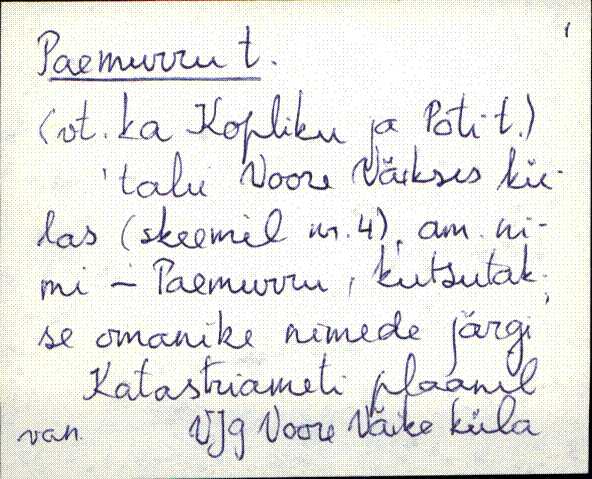 Paemurru t.
(vt. ka Kopliku ja Poti t.)
'talu Voore Väikses kü-
las (skeemil nr. 4), am. ni-
mi - Paemurru, kutsutak-
se omanike nimede järgi
Katastriameti plaanil
van. VJg Voore Väike küla